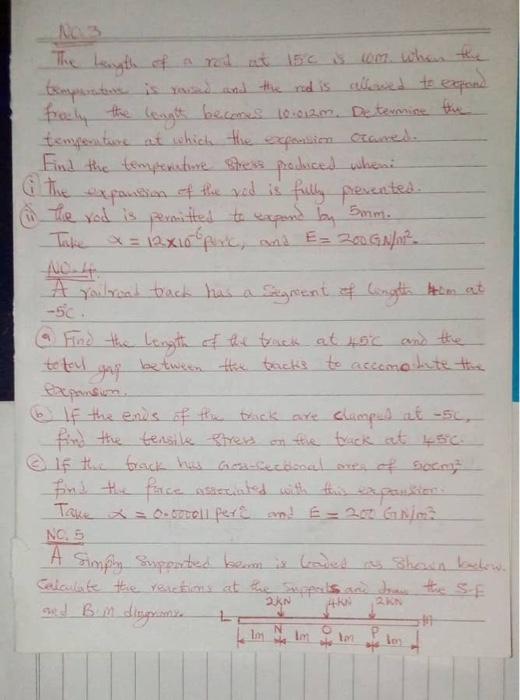 NO.3
The Length of a rod at 15°C is 10m. When the
temperature is raised and the rod is allowed to expand
freely the length becomes 10.012m. Determine the
temperature at which the expansion occured.
Find the temperature stress produced when:
(i) The expansion of the rod is fully prevented.
(ii) The rod is permitted to expand by 5mm.
Take α = 12×10⁻⁶ per°C, and E = 200GN/m².
NO.4.
A railroad track has a Segment of length m at
-5°C.
(a) Find the length of the track at 45°C and the
total gap between the tracks to accomodate the
expansion.
(b) If the ends of the track are clamped at -5C,
find the tensile stress on the track at 45°C.
(c) If the track has Cross-Sectional area of cm²,
find the force associated with this expansion.
Take α = 0.000011 per°C and E = GN/m²
NO. 5
A Simply Supported beam is loaded as shown below.
Calculate the reactions at the supports and draw the S.F
and B.M diagrams.
2kN 4kN 2kN
L M
N O P
1m 1m 1m 1m